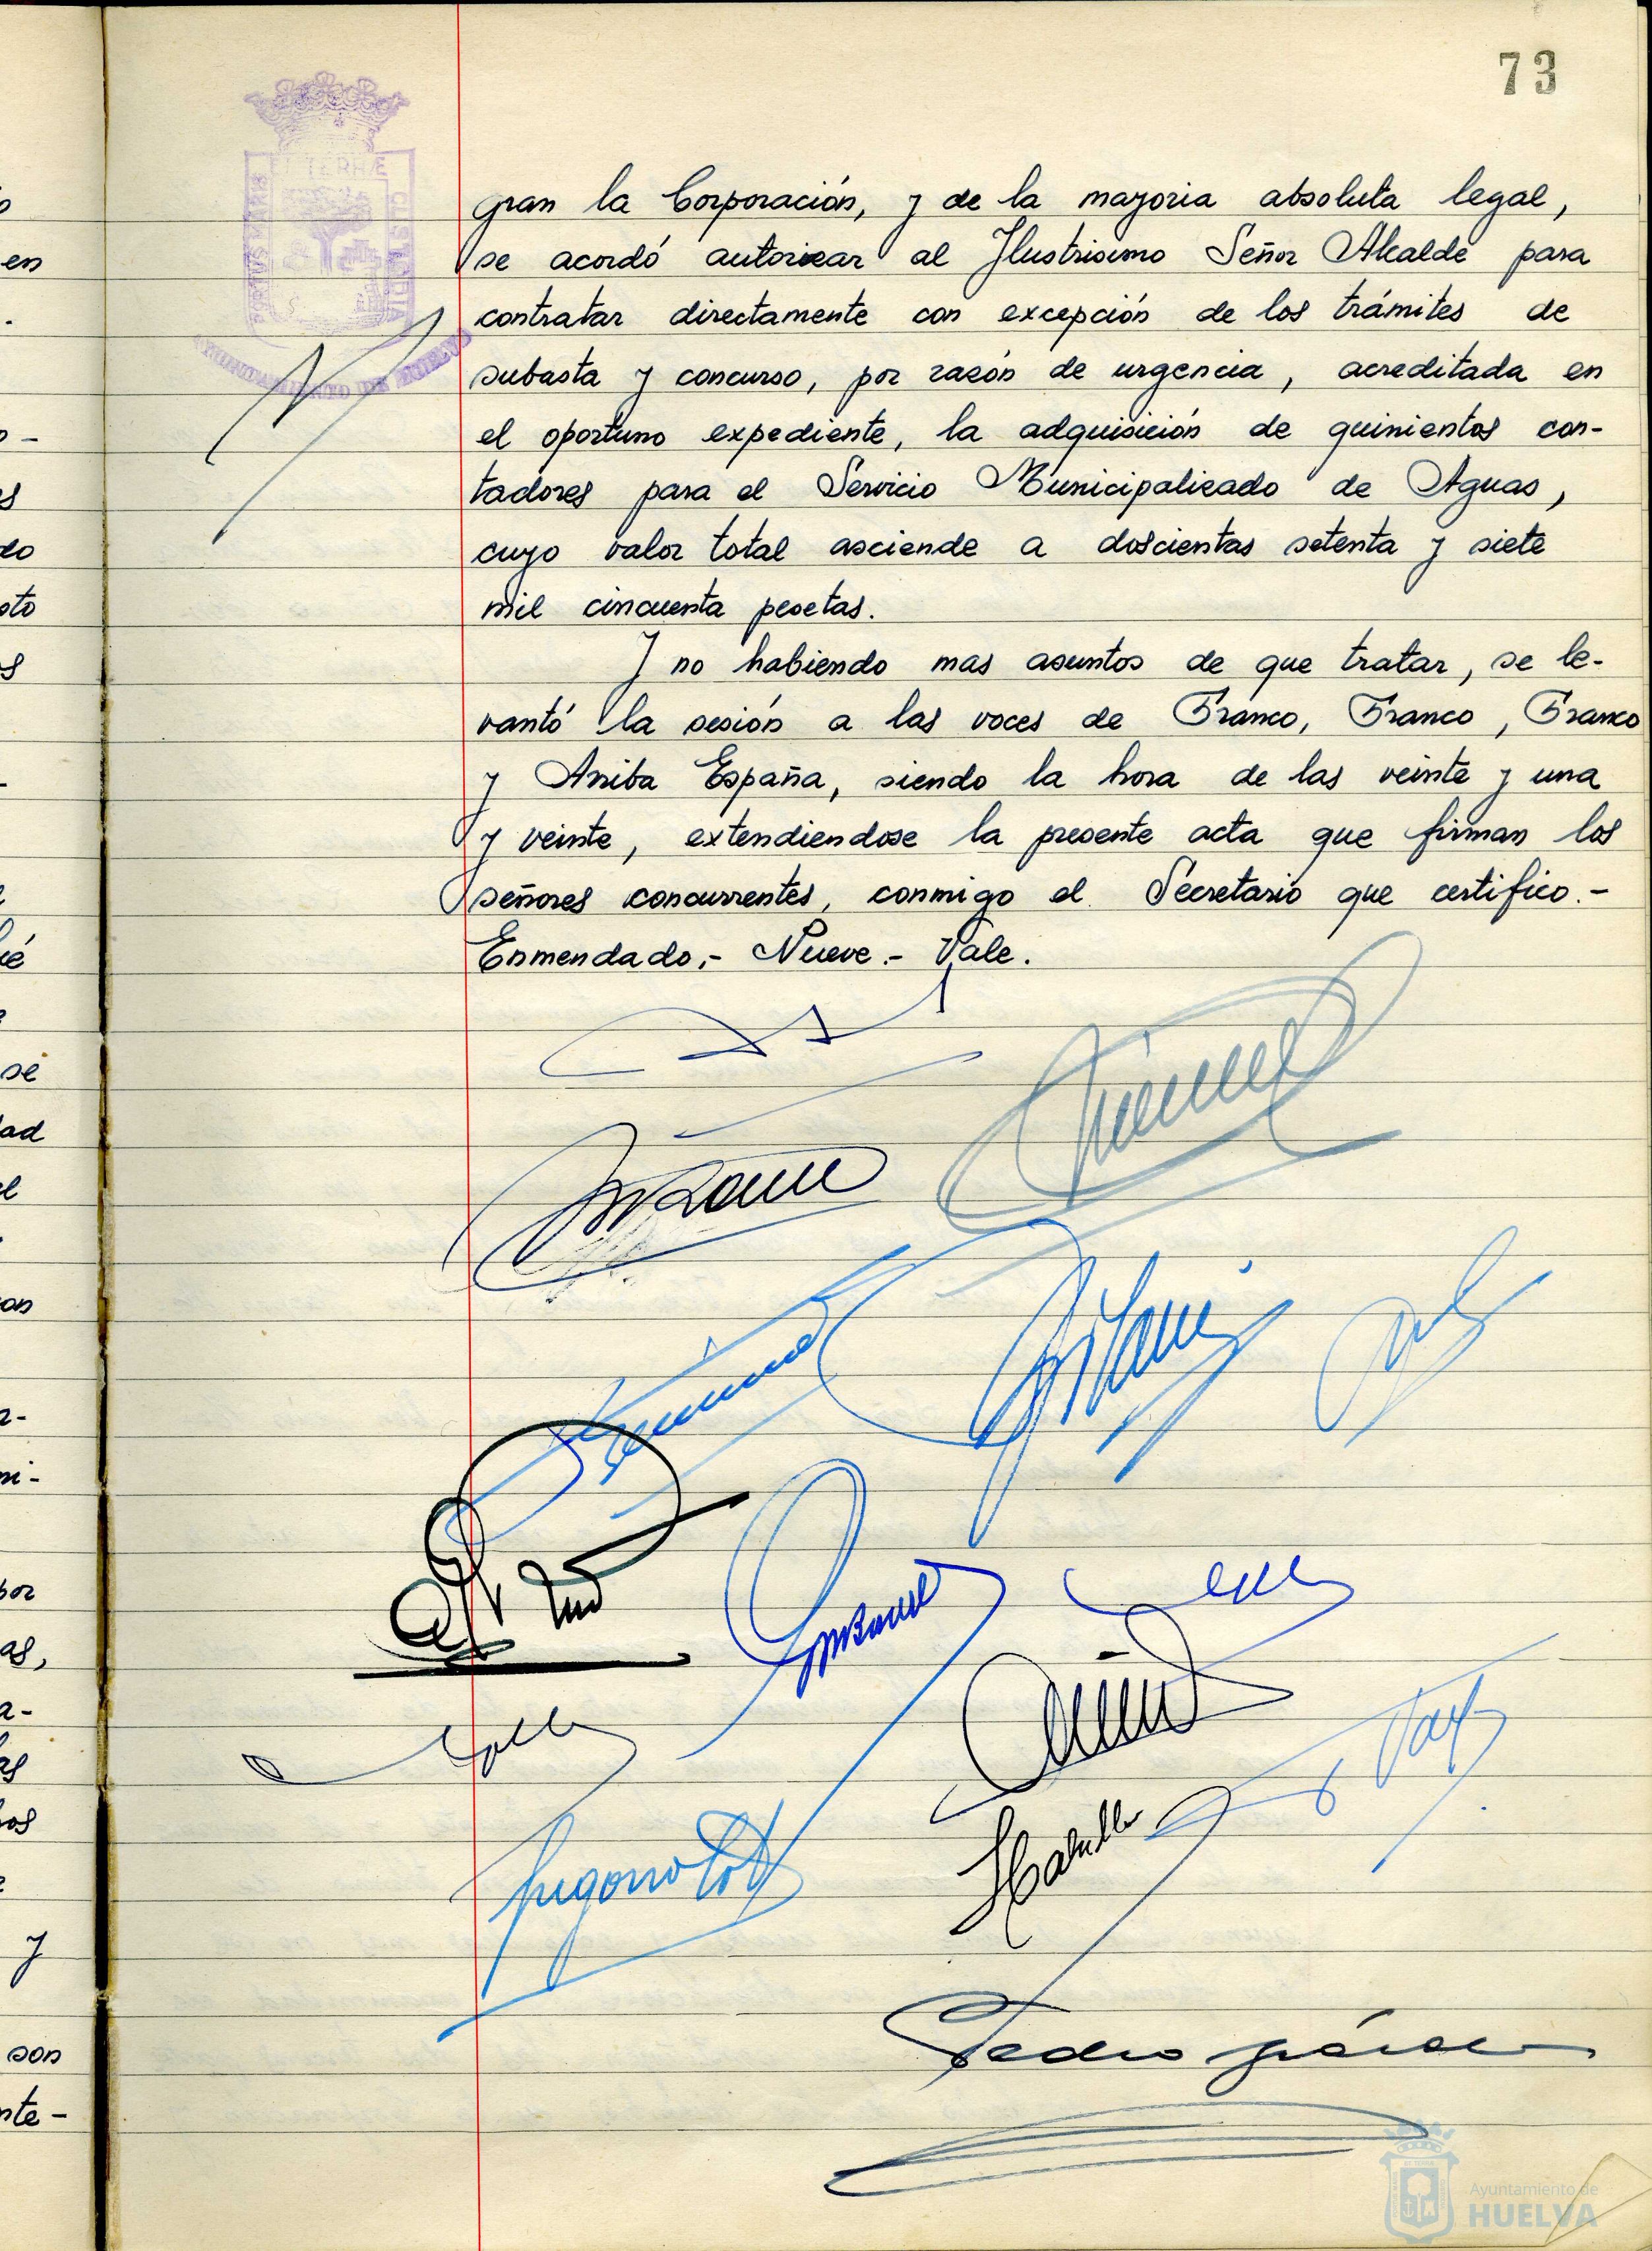 73
PORTUS MARIS
ET TERRÆ
CUSTODIA
AYUNTAMIENTO DE HUELVA
gran la Corporación, y de la mayoria absoluta legal,
se acordó autorizar al Ilustrisimo Señor Alcalde para
contratar directamente con excepción de los trámites de
subasta y concurso, por razón de urgencia, acreditada en
el oportuno expediente, la adquisición de quinientos con-
tadores para el Servicio Municipalizado de Aguas,
cuyo valor total asciende a doscientas setenta y siete
mil cincuenta pesetas.
Y no habiendo mas asuntos de que tratar, se le-
vantó la sesión a las voces de Franco, Franco, Franco
y Arriba España, siendo la hora de las veinte y una
y veinte, extendiendose la presente acta que firman los
señores concurrentes, conmigo el Secretario que certifico.-
Enmendado.- Nueve.- Vale.
Pedro
Ayuntamiento de
HUELVA
en
do
sto
se
dad
el
on
por
as,
y
son
nte-